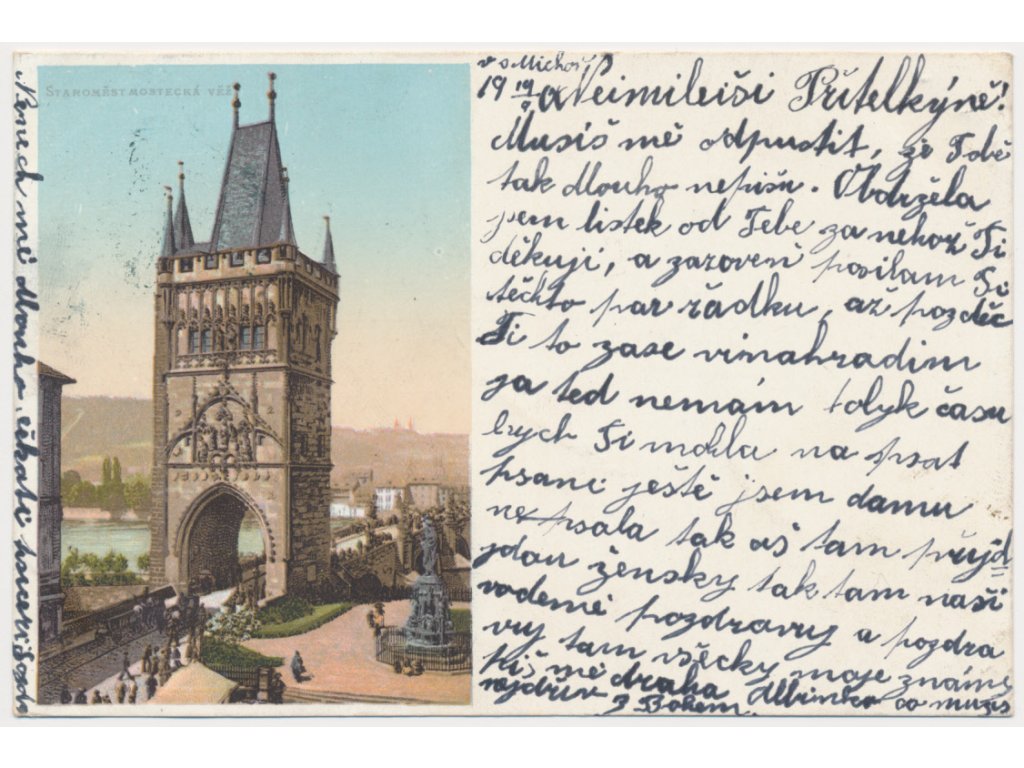 STAROMĚST. MOSTECKÁ VĚŽ
v s Michos
19 19/9
Neimileiši Přitelkýně!
Musiš mě odpustit, že Tobě
tak dlouho nepišu. Obdržela
jsem listek od Tebe za nehož Ti
děkuji, a zaroveň posilam Ti
těchto par řádku, až pozděč
Ti to zase vinahradim
ja ted nemám tolyk času
bych Ti mohla na psat
psani ještě jsem damu
nepsala tak aš tam přijd
jdou žensky tak tam naši
vodemě pozdravy a pozdra
vy tam všecky moje známe
piš mě draha Albinko co musis
nejdřiv z Bohem.
Nenich mě dlouho čekati